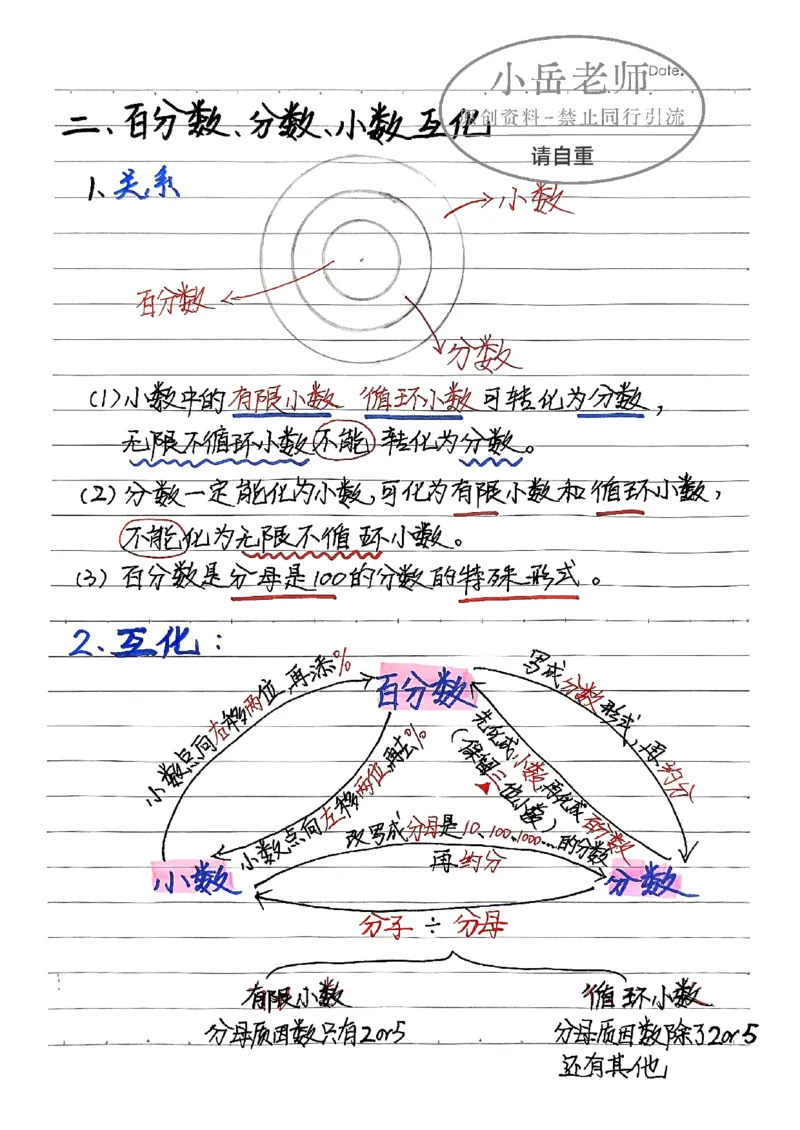 小岳老师
Date.
原创资料-禁止同行引流
请自重
二、百分数、分数、小数互化
1、关系
小数
百分数
分数
(1)小数中的有限小数 循环小数可转化为分数,
无限不循环小数不能转化为分数。
(2)分数一定能化为小数,可化为有限小数和循环小数,
不能化为无限不循环小数。
(3)百分数是分母是100的分数的特殊形式。
2、互化:
小数点向左移两位,再添%
百分数
写成分数形式,再约分
小数点向左移两位,再去%
先化成小数,再化成百分数
(保留三位小数)
改写成分母是10、100、1000…的分数
再约分
小数
分数
分子÷分母
有限小数
循环小数
分母质因数只有2or5
分母质因数除了2or5
还有其他